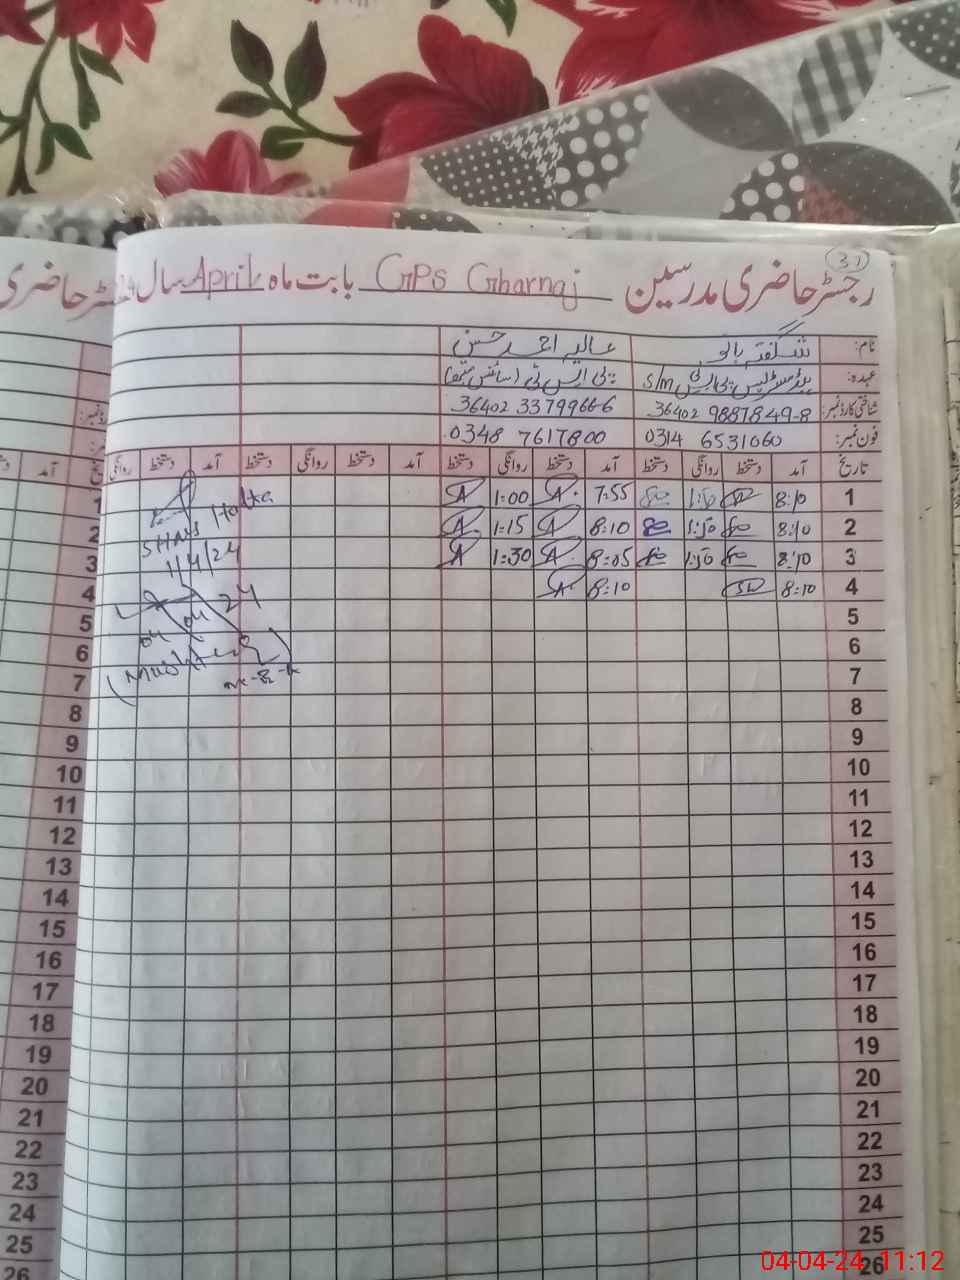 31
رجسٹر حاضری مدرسین GPS Gharnaj بابت ماہ April سال
نام: شگفتہ بانو عالیہ احمد حسن
عہدہ: ہیڈ مسٹریس پی ایس ٹی S/M پی ایس ٹی (سائنس
شناختی کارڈ نمبر: 36402 9887849-8 36402 3379966-6
فون نمبر: 0314 6531060 0348 7617800
تاریخ آمد دستخط روانگی دستخط آمد دستخط روانگی دستخط آمد دستخط روانگی دستخط آمد دستخط روانگی
1 8:10 1:50 7:55 1:00
2 8:10 1:50 8:10 1:15
3 8:10 1:50 8:05 1:30
4 8:10 8:10
5
6
7
8
9
10
11
12
13
14
15
16
17
18
19
20
21
22
23
24
25
26
1/4/24
04 04 24
حاضری
آمد
1
2
3
4
5
6
7
8
9
10
11
12
13
14
15
16
17
18
19
20
21
22
23
24
25
26
04-04-24 11:12